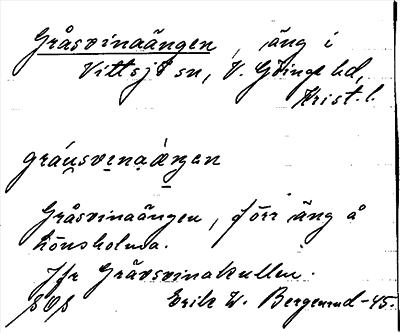 Gråsvinaängen, äng i
Vittsjö sn, V. Göinge hd,
Krist. l.
gráu̯svi̲nạä́ŋan
Gråsvinaängen, förr äng å
Hönsholma.
Jfr Gråsvinakullen.
Erik W. Bergenrud -45.